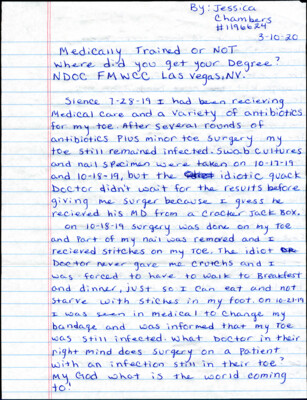 By: Jessica
Chambers
#1196624
3-10-20
Medically Trained or NOT
Where did you get your Degree?
NDOC FMWCC Las Vegas, NV.
Sience 7-28-19 I had been recieving
Medical Care and a variety of antibiotics
for my toe. After Several rounds of
antibiotics Plus minor toe surgery my
toe still remained infected. Swab cultures
and nail specimen were taken on 10-17-19
and 10-18-19, but the idiotic quack
Doctor didn't wait for the results before
giving me surger because I gress he
recieved his M.D. from a Cracker Jack Box.
on 10-18-19 surgery was done on my toe
and Part of my nail was removed and I
recieved stitches on my TOE. The idiot
Doctor never gave me crutchs and I
was forced to have to walk to Breakfast
and dinner, just so I can eat and not
starve with stiches in my foot. on 10-21-19
I was seen in medical to Change my
bandage and was informed that my toe
was still infected. What Doctor in their
right mind does surgery on a Patient
with an infection still in their toe?
My God what is the world coming
to!